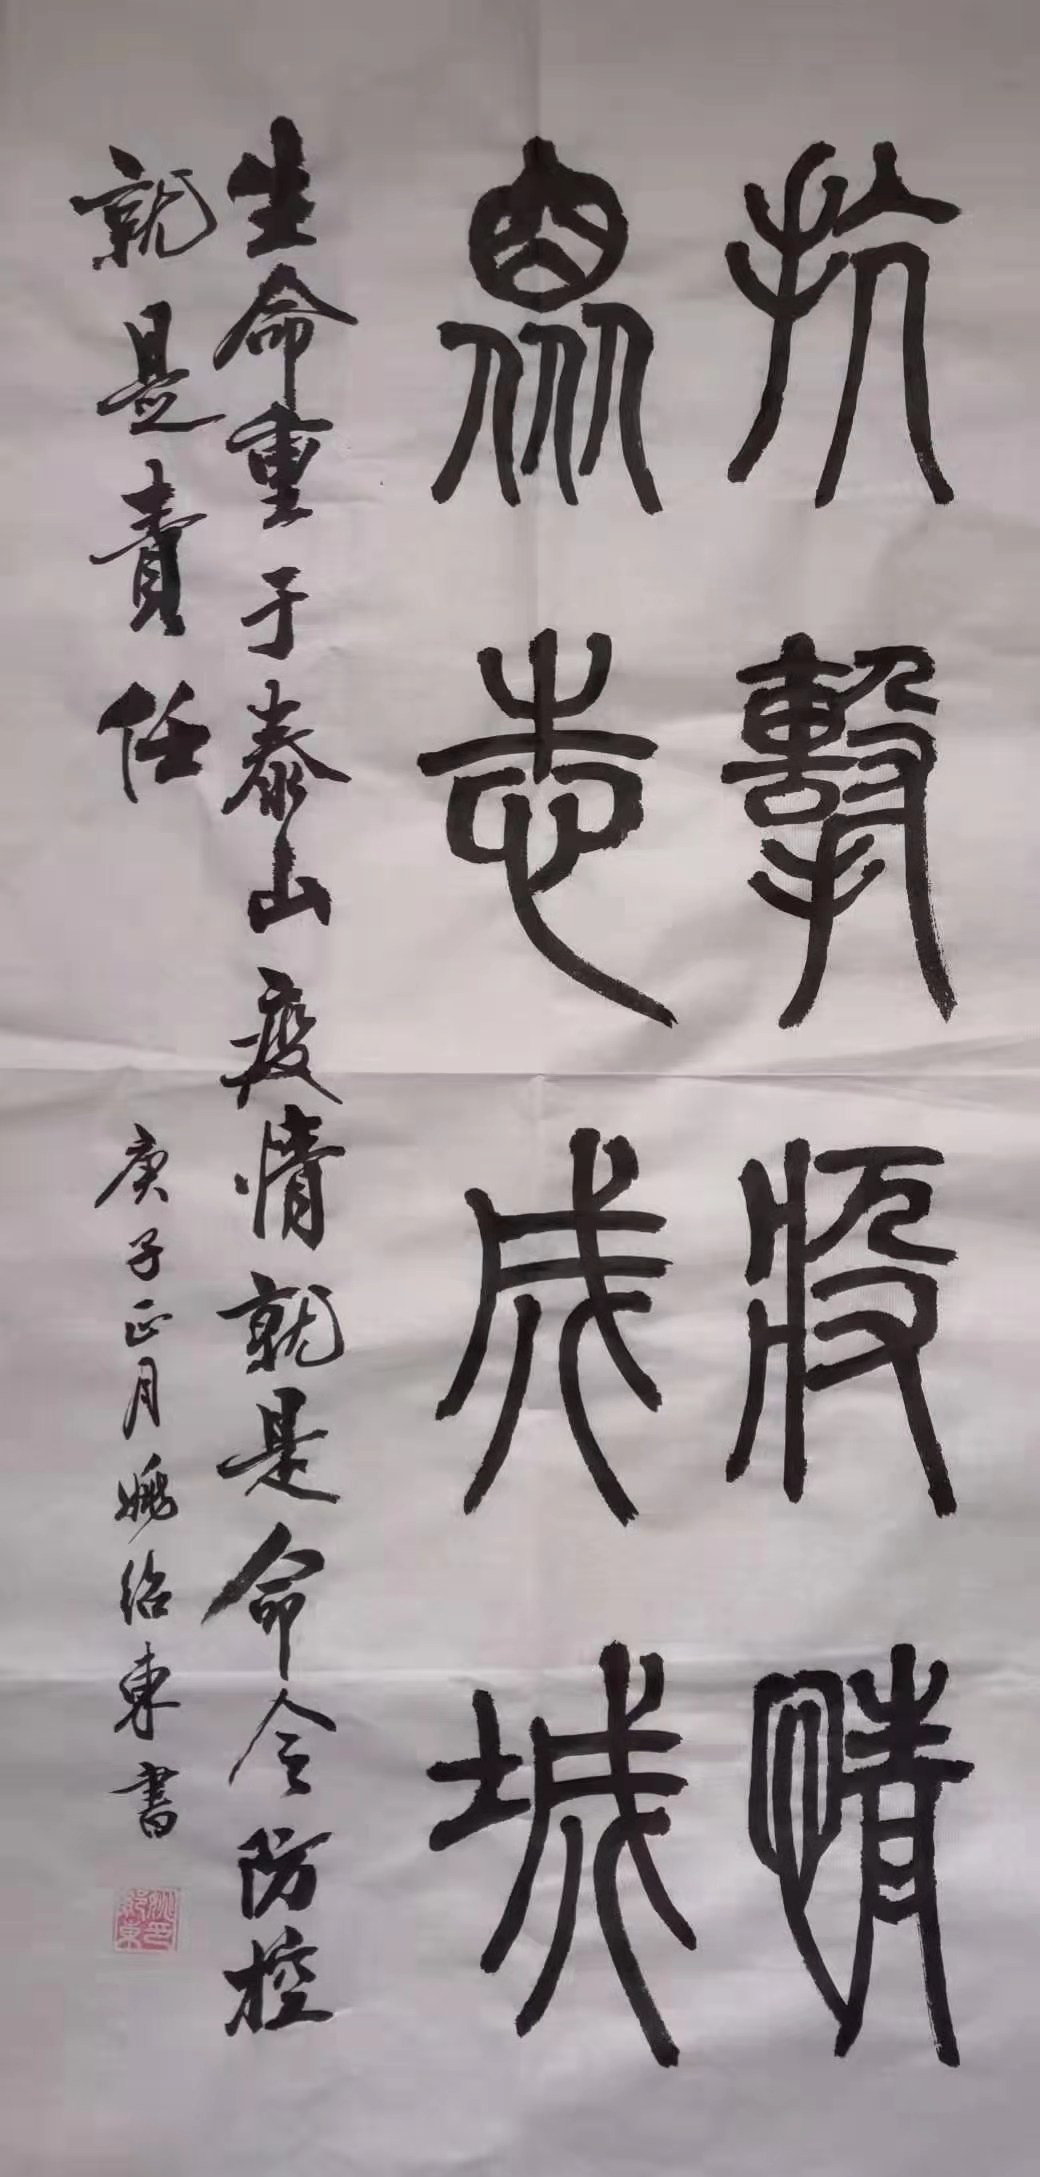 抗擊疫情
眾志成城
生命重于泰山疫情就是命令防控
就是責任
庚子正月姚绍東書
姚印紹東